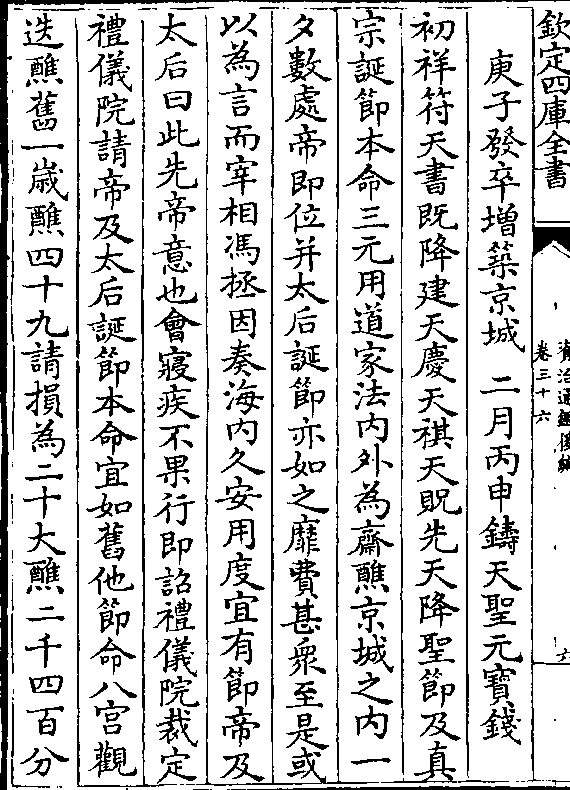 欽定四庫全書
資治通鑑後編
卷三十六
六
庚子發卒増築京城　二月丙申鑄天聖元寶錢
初祥符天書既降建天慶天祺天貺先天降聖節及真
宗誕節本命三元用道家法内外為齋醮京城之内一
夕數處帝即位并太后誕節亦如之靡費甚衆至是或
以為言而宰相馮拯因奏海内久安用度宜有節帝及
太后曰此先帝意也會寢疾不果行即詔禮儀院裁定
禮儀院請帝及太后誕節本命宜如舊他節命八宮觀
迭醮舊一嵗醮四十九請損為二十大醮二千四百分